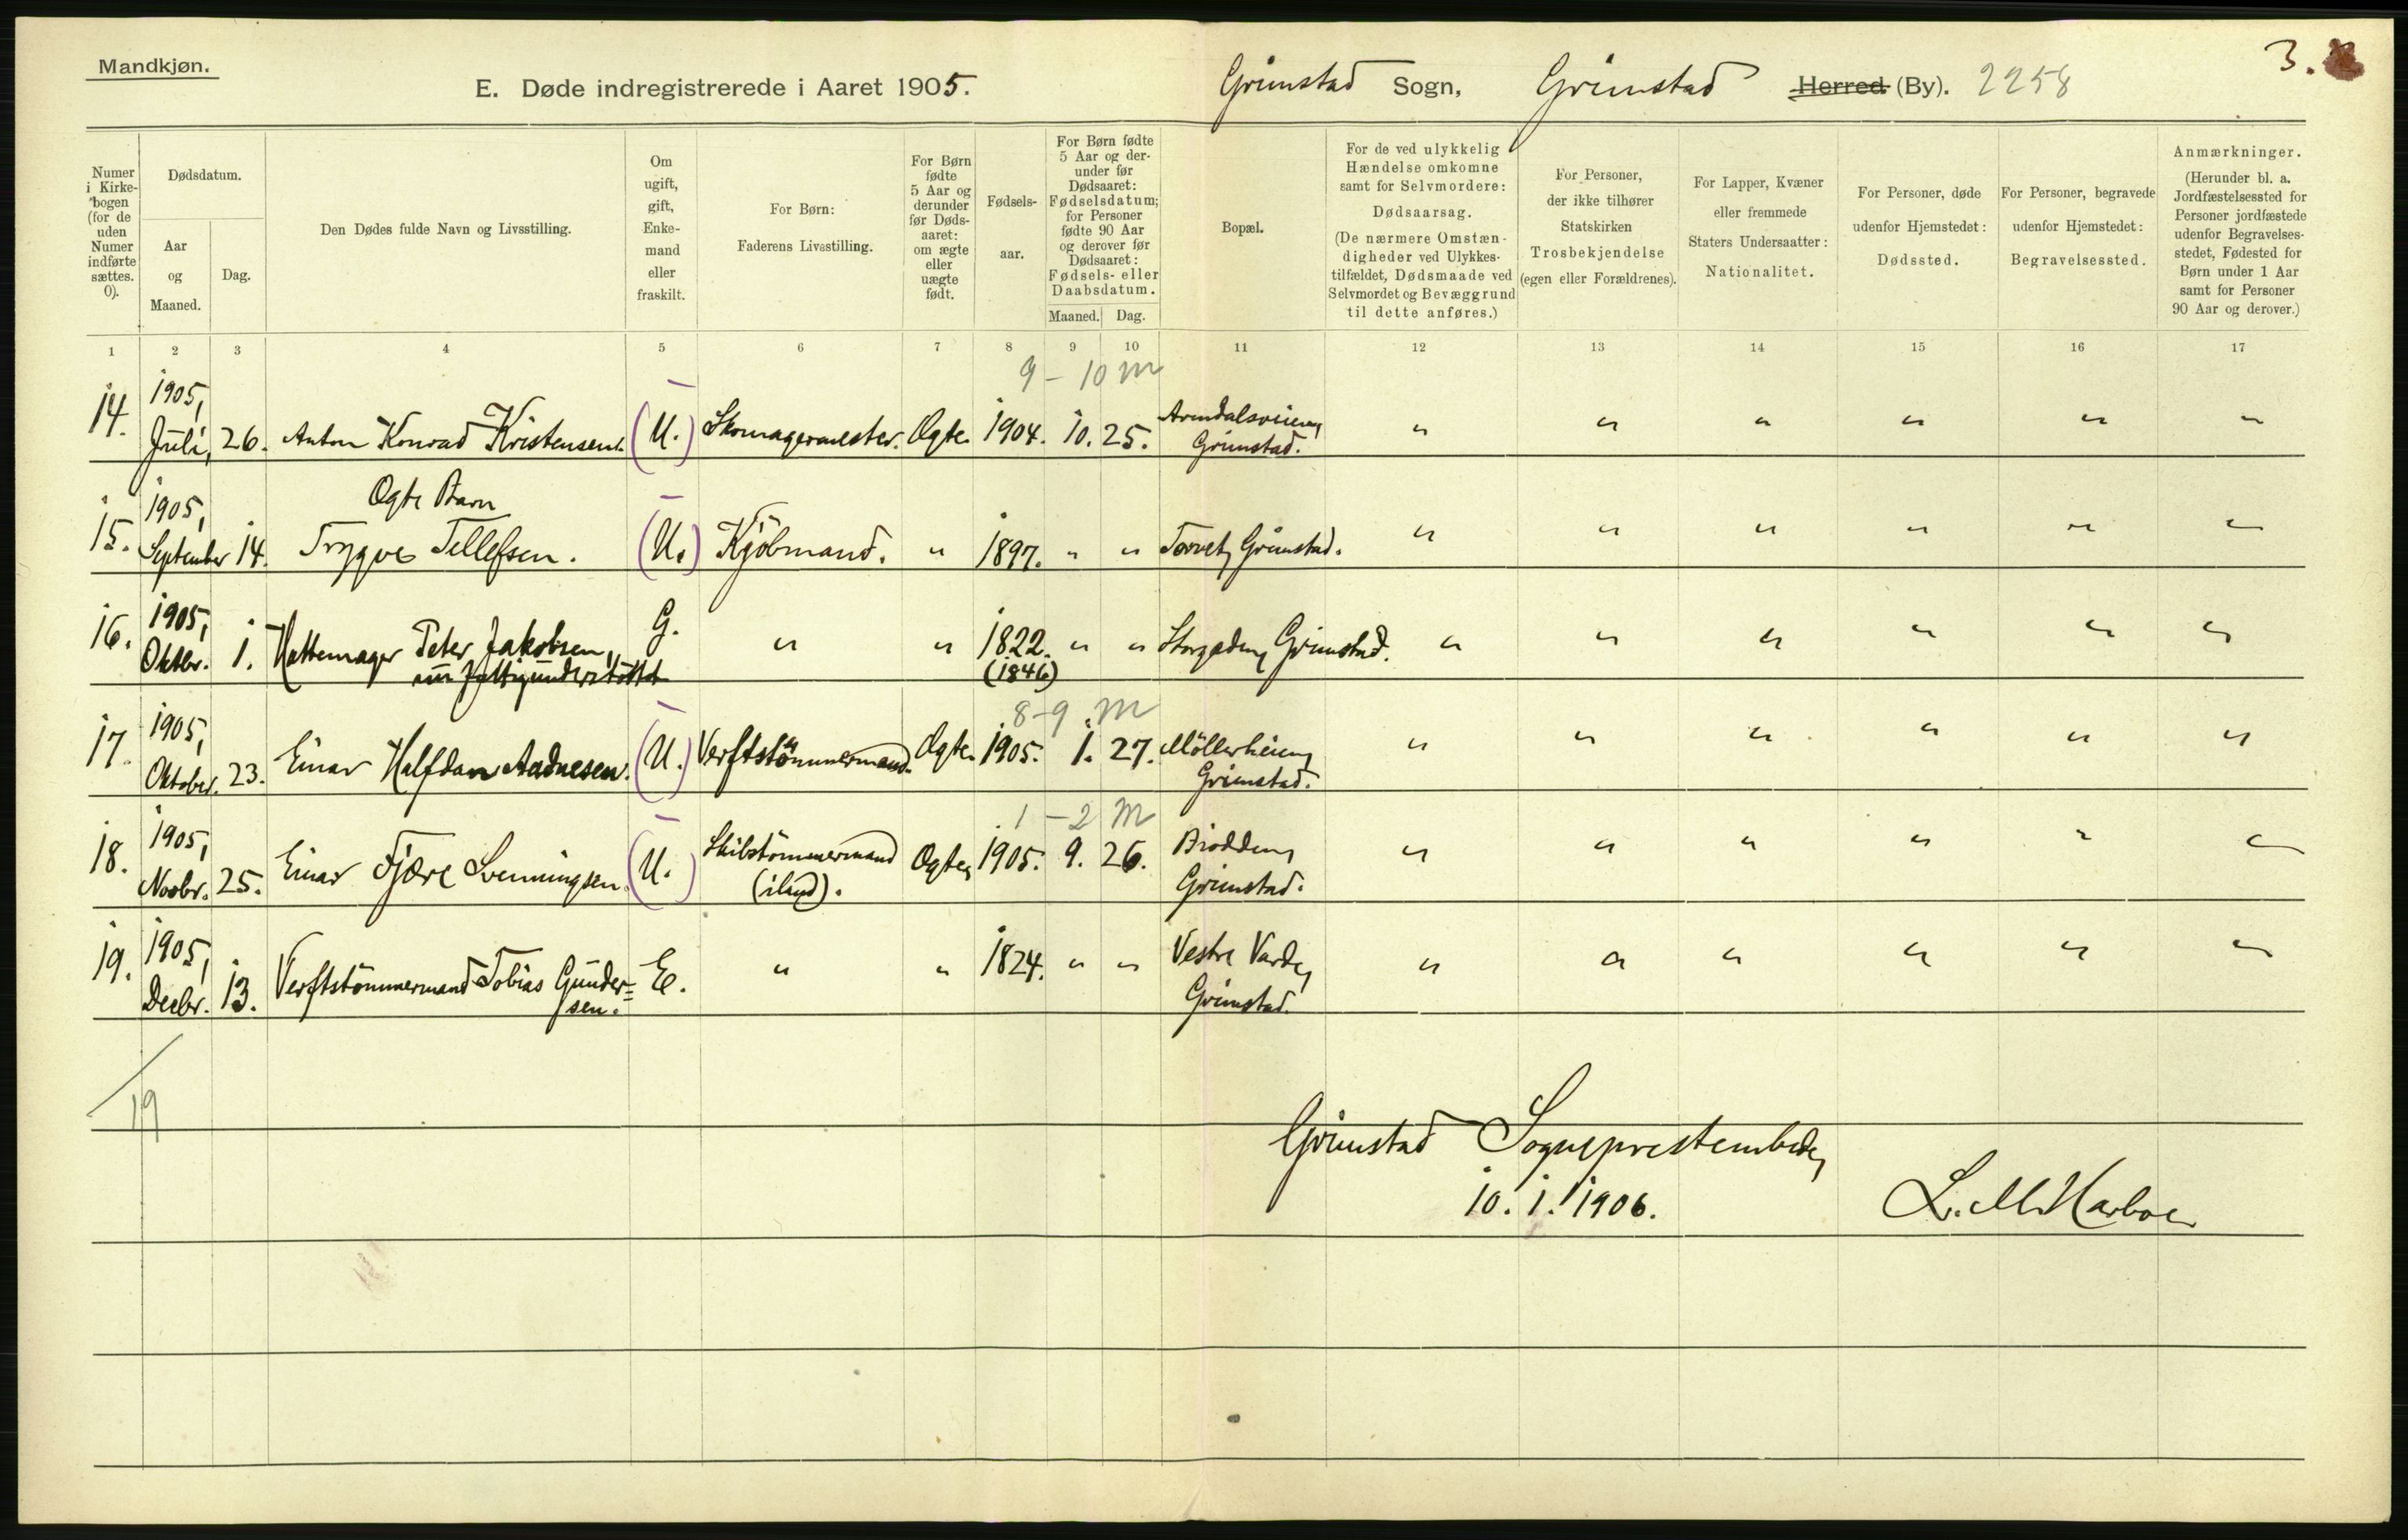 Mandkjøn.
E. Døde indregistrerede i Aaret 1905.
Grimstad Sogn, Grimstad Herred (By). 2258
3.
Numer i Kirkebogen (for de uden Numer indførte sættes. 0).
Dødsdatum.
Aar og Maaned.
Dag.
Den Dødes fulde Navn og Livsstilling.
Om ugift, gift, Enkemand eller fraskilt.
For Børn: Faderens Livsstilling.
For Børn fødte 5 Aar og derunder før Dødsaaret: om ægte eller uægte født.
Fødselsaar.
For Børn fødte 5 Aar og derunder før Dødsaaret: Fødselsdatum; for Personer fødte 90 Aar og derover før Dødsaaret: Fødsels- eller Daabsdatum.
Maaned. Dag.
Bopæl.
For de ved ulykkelig Hændelse omkomne samt for Selvmordere: Dødsaarsag. (De nærmere Omstændigheder ved Ulykkestilfældet, Dødsmaade ved Selvmordet og Bevæggrund til dette anføres.)
For Personer, der ikke tilhører Statskirken Trosbekjendelse (egen eller Forældrenes).
For Lapper, Kvæner eller fremmede Staters Undersaatter: Nationalitet.
For Personer, døde udenfor Hjemstedet: Dødssted.
For Personer, begravede udenfor Hjemstedet: Begravelsessted.
Anmærkninger. (Herunder bl. a. Jordfæstelsessted for Personer jordfæstede udenfor Begravelsesstedet, Fødested for Børn under 1 Aar samt for Personer 90 Aar og derover.)
1 2 3 4 5 6 7 8 9 10 11 12 13 14 15 16 17
9 - 10 m
14. 1905, Juli, 26. Anton Konrad Kristensen. (U.) Skomagermester. Ægte. 1904. 10. 25. Arendalsveien, Grimstad. " " " " " "
Ægte Barn
15. 1905, September 14. Trygve Tellefsen. (U.) Kjöbmand. " 1897. " " Torvet, Grimstad. " " " " " "
16. 1905, Oktbr. 1. Hattemager Peter Jakobsen, G. " " 1822. " " Storgaden, Grimstad. " " " " " "
fattigunderstöttet (1846)
8-9 m
17. 1905, Oktober. 23. Einar Halfdan Aadnesen. (U.) Verftstömmermand. Ægte. 1905. 1. 27. Möllerheien, Grimstad. " " " " " "
1 - 2 m
18. 1905, Novbr. 25. Einar Fjære Svenningsen. (U.) Skibstömmermand (iland). Ægte, 1905. 9. 26. Brodden, Grimstad. " " " " " "
19. 1905, Decbr. 13. Verftstömmermand Tobias Gundersen. E. " " 1824. " " Vestre Varde, Grimstad. " " " " " "
19
Grimstad Sogneprestembede,
10. 1. 1906. L. M. Harboe